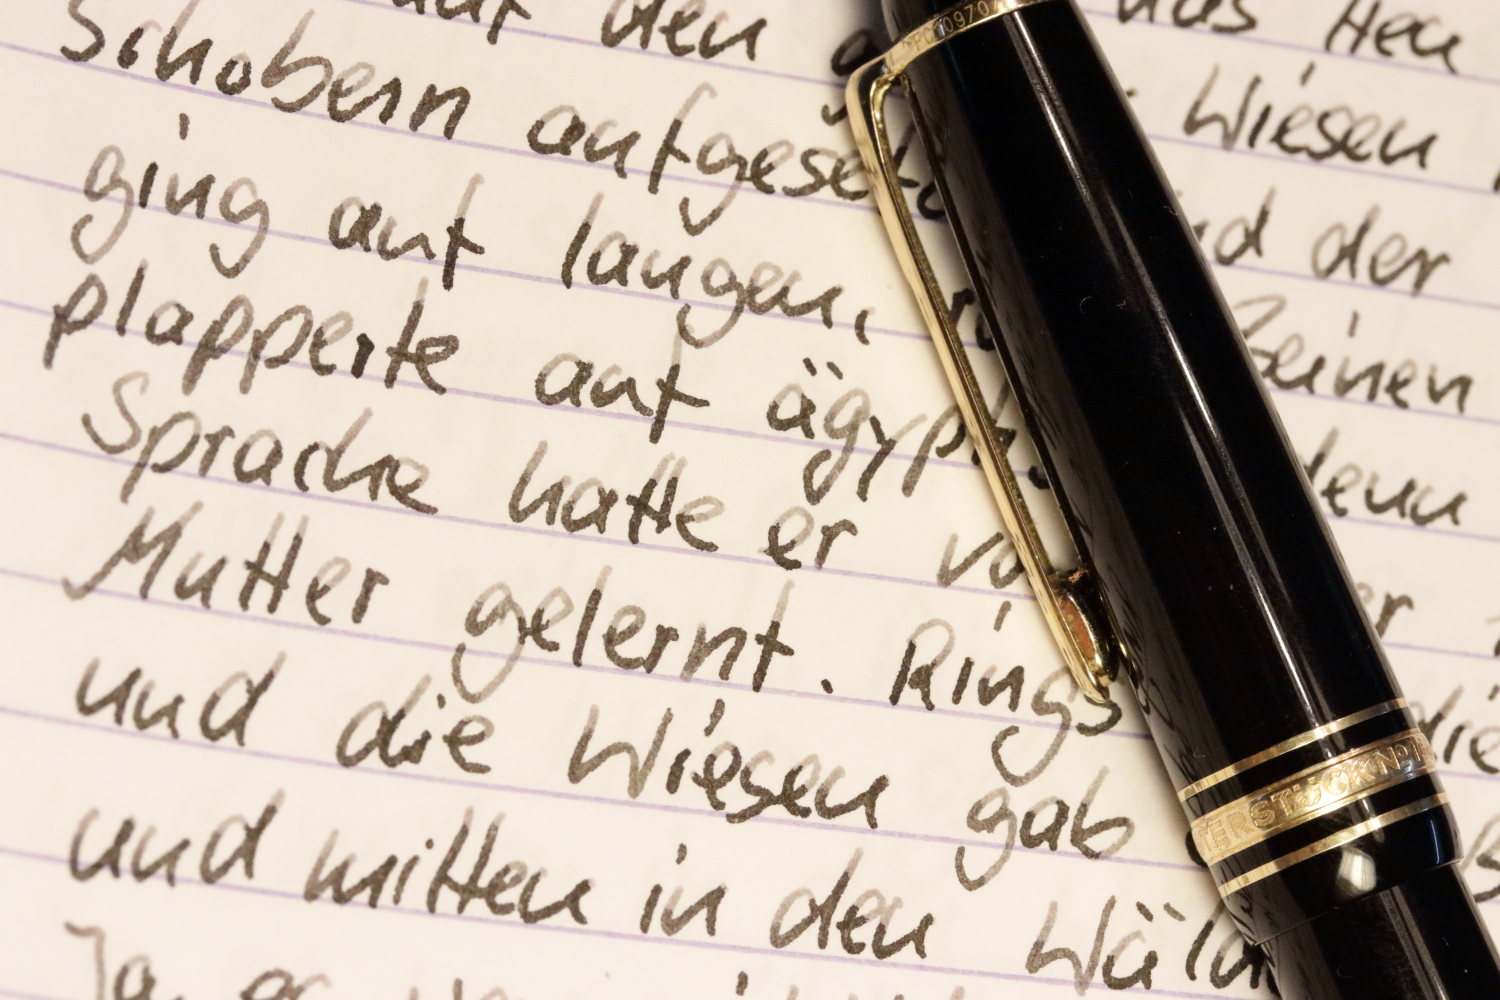 auf den das Heu
Schobern aufgesetz Wiesen
ging auf langen, und der
plapperte auf ägypt Beinen
Sprache hatte er vo denn
Mutter gelernt. Rings er
und die Wiesen gab die
und mitten in den Wäld
Ja, es
PC10970
TERSTÜCK Nº 1